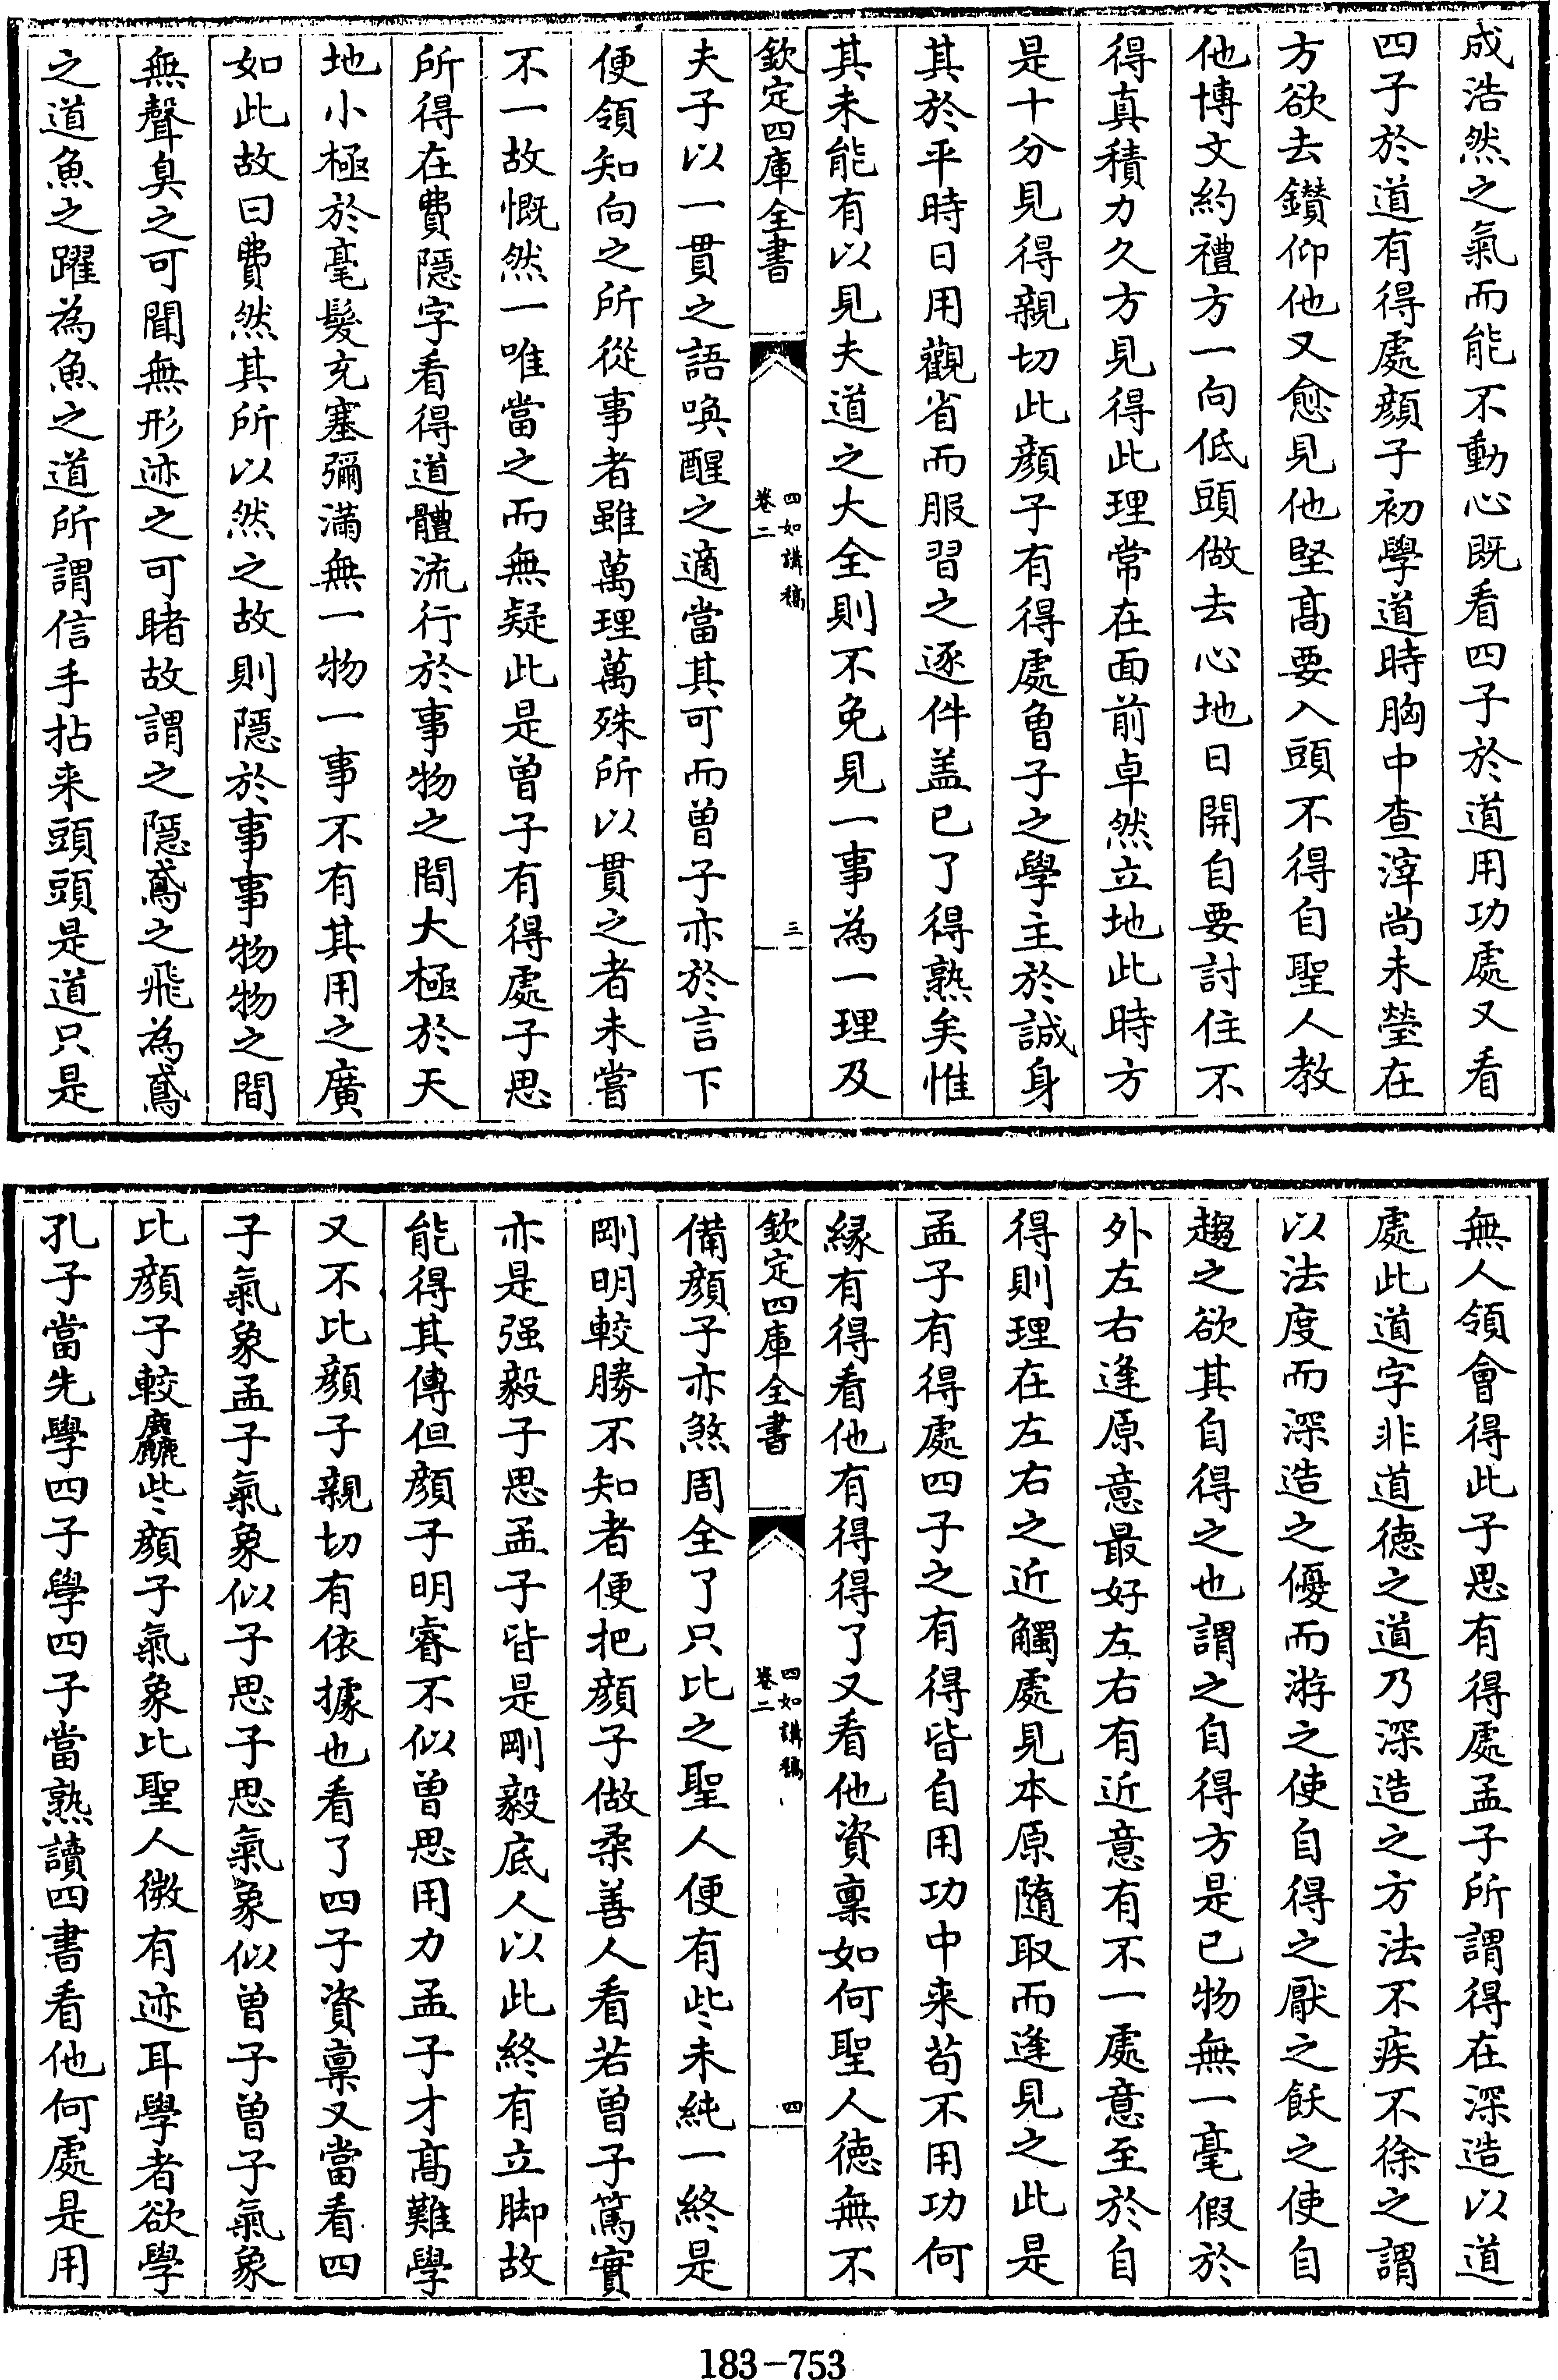 成浩然之氣而能不動心既看四子於道用功處又看
四子於道有得處顔子初學道時胸中查滓尚未瑩在
方欲去鑽仰他又愈見他堅髙要入頭不得自聖人教
他博文約禮方一向低頭做去心地日開自要討住不
得真積力久方見得此理常在面前卓然立地此時方
是十分見得親切此顔子有得處曽子之學主於誠身
其於平時日用觀省而服習之逐件盖已了得熟矣惟
其未能有以見夫道之大全則不免見一事為一理及
欽定四庫全書
四如講稿
卷二
三
夫子以一貫之語喚醒之適當其可而曽子亦於言下
便領知向之所從事者雖萬理萬殊所以貫之者未嘗
不一故慨然一唯當之而無疑此是曽子有得處子思
所得在費隠字看得道體流行於事物之間大極於天
地小極於毫髮充塞彌滿無一物一事不有其用之廣
如此故曰費然其所以然之故則隠於事事物物之間
無聲臭之可聞無形迹之可睹故謂之隠鳶之飛為鳶
之道魚之躍為魚之道所謂信手拈来頭頭是道只是
無人領會得此子思有得處孟子所謂得在深造以道
處此道字非道徳之道乃深造之方法不疾不徐之謂
以法度而深造之優而游之使自得之厭之飫之使自
趨之欲其自得之也謂之自得方是已物無一毫假於
外左右逢原意最好左右有近意有不一處意至於自
得則理在左右之近觸處見本原隨取而逢見之此是
孟子有得處四子之有得皆自用功中来苟不用功何
縁有得看他有得得了又看他資禀如何聖人徳無不
欽定四庫全書
四如講稿
卷二
四
備顔子亦煞周全了只比之聖人便有些未純一終是
剛明較勝不知者便把顔子做柔善人看若曽子篤實
亦是强毅子思孟子皆是剛毅底人以此終有立脚故
能得其傳但顔子明睿不似曽思用力孟子才髙難學
又不比顔子親切有依據也看了四子資禀又當看四
子氣象孟子氣象似子思子思氣象似曽子曽子氣象
比顔子較麤些顔子氣象比聖人微有迹耳學者欲學
孔子當先學四子學四子當熟讀四書看他何處是用
183-753